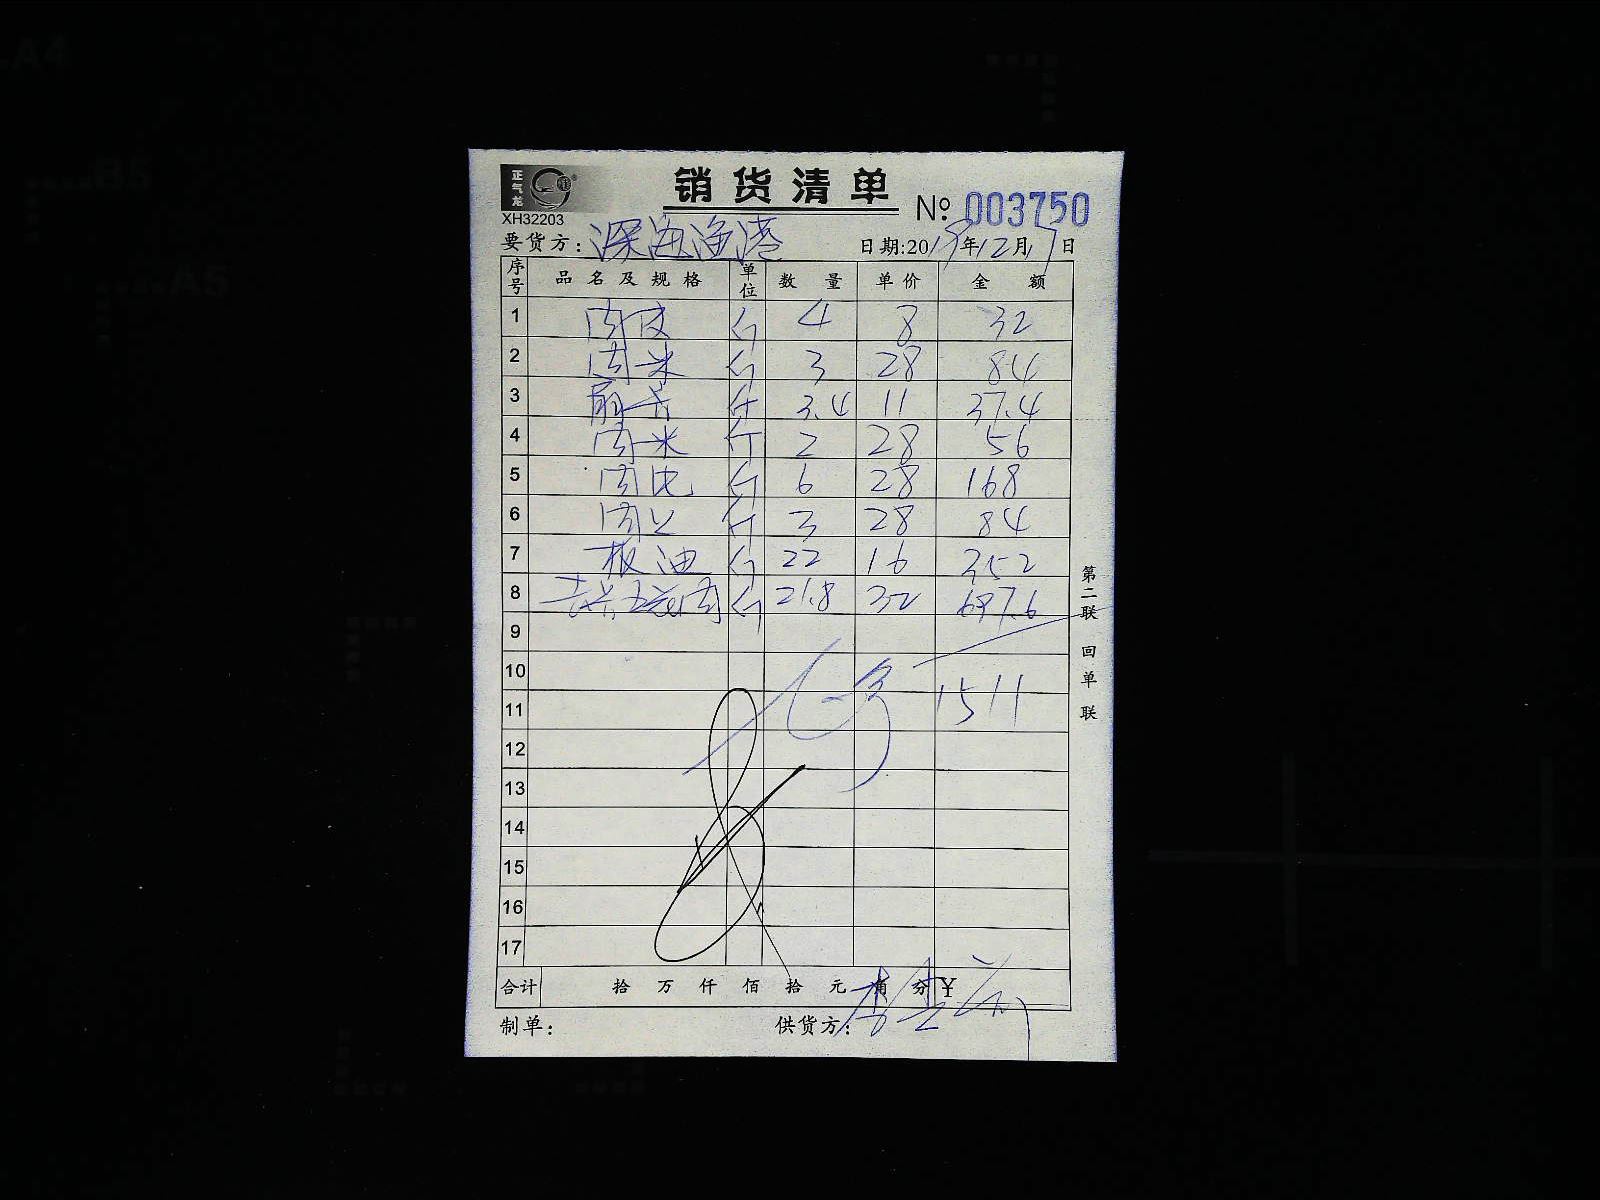 正气龙
XH32203
销货清单
№: 003750
要货方: 深海渔港 日期:2019年12月17日
序号 品名及规格 单位 数量 单价 金额
1 肉皮 斤 4 8 32
2 肉米 斤 3 28 84
3 斤 3.4 11 37.4
4 肉米 斤 2 28 56
5 肉 斤 6 28 168
6 肉 斤 3 28 84
7 板油 斤 22 16 352
8 去皮五花肉 斤 21.8 32 697.6
9
10
11 1511
12
13
14
15
16
17
合计 拾 万 仟 佰 拾 元 角 分 ¥
制单: 供货方:
第二联 回单联